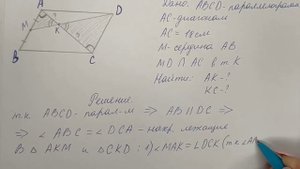 A
D
M
K
B
C
Дано: ABCD-параллелограмм
AC-диагональ
AC = 18см
M-середина AB
MD ∩ AC в т. K
Найти: AK-?
KC-?
Решение
т.к. ABCD- парал-м ⇒ AB || DC ⇒
⇒ ∠ABC = ∠DCA - накр. лежащие
В △ AKM и △ CKD : 1) ∠MAK = ∠DCK (т.к. ∠A